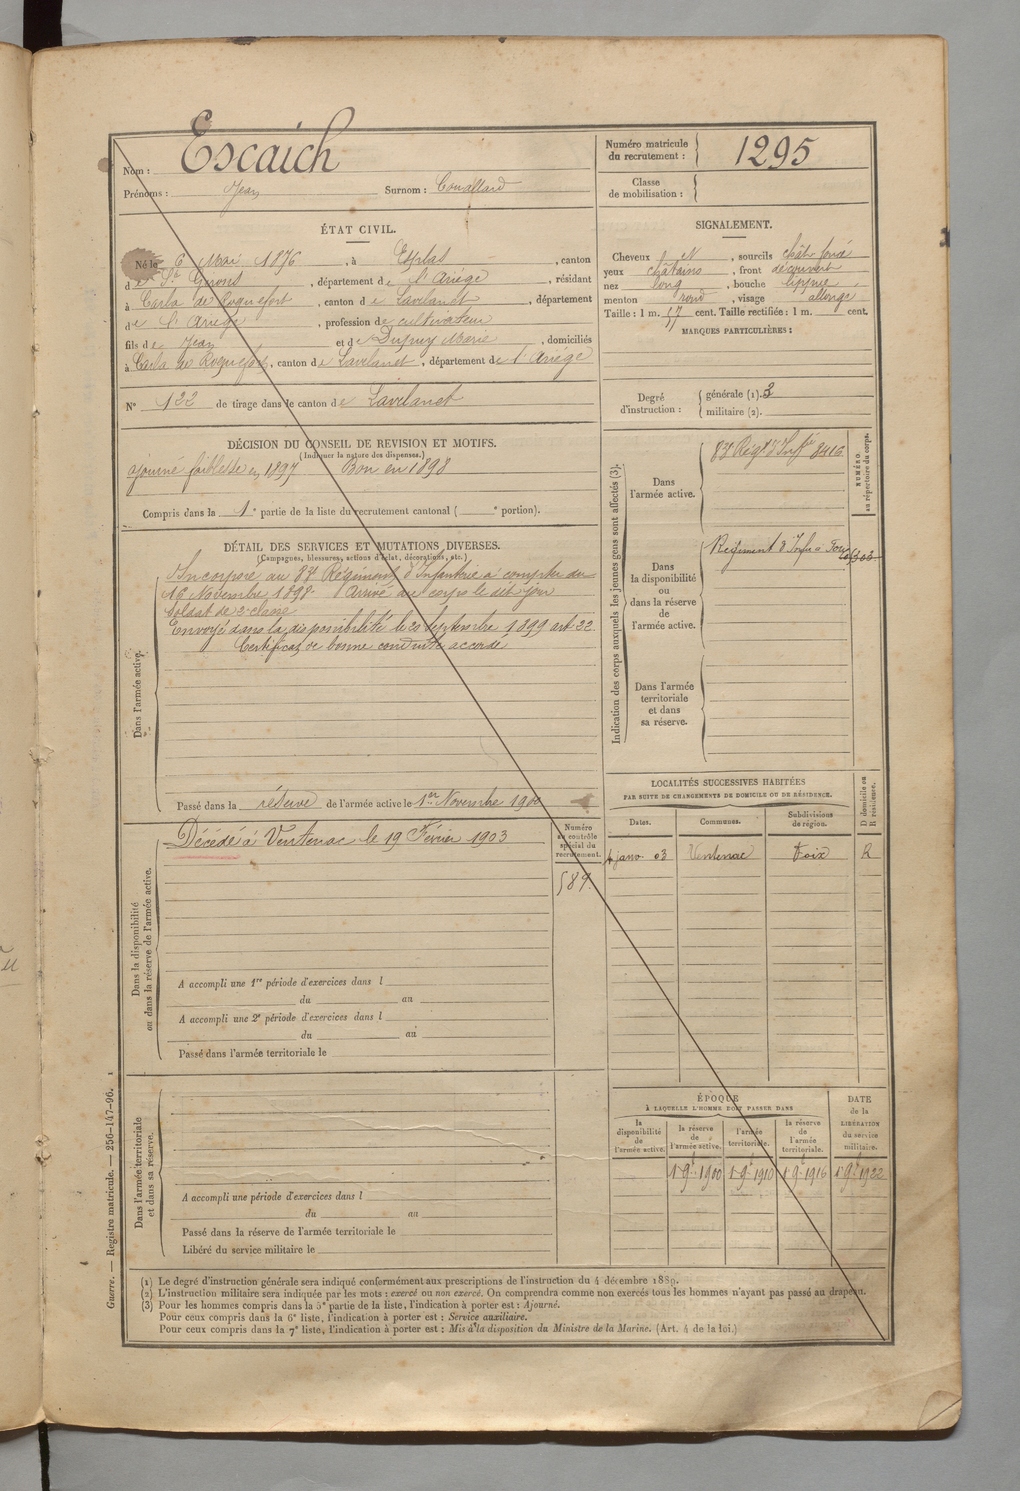 Nom : Escaich
Prénoms : Jean Surnom :
Numéro matricule du recrutement : 1295
Classe de mobilisation :
ÉTAT CIVIL.
Né le 6 Mai 1876, à Esplas, canton
de St Girons, département de l'Ariège, résidant
à Carla de Roquefort, canton de Lavelanet, département
de l'Ariège, profession de cultivateur
fils de Jean et de Dupuy Marie, domiciliés
à Carla de Roquefort, canton de Lavelanet, département de l'Ariège
N° 122 de tirage dans le canton de Lavelanet
SIGNALEMENT.
Cheveux et N, sourcils chât. foncé
yeux châtains, front découvert
nez long, bouche lippue
menton rond, visage allongé
Taille : 1 m. 57 cent. Taille rectifiée : 1 m. cent.
MARQUES PARTICULIÈRES :
Degré d'instruction : générale (1). 3
militaire (2).
DÉCISION DU CONSEIL DE REVISION ET MOTIFS.
(Indiquer la nature des dispenses.)
ajourné faiblesse en 1897 Bon en 1898
Compris dans la 1e partie de la liste du recrutement cantonal ( e portion).
DÉTAIL DES SERVICES ET MUTATIONS DIVERSES.
(Campagnes, blessures, actions d'éclat, décorations, etc.)
Dans l'armée active.
Incorporé au 83e Régiment d'Infanterie à compter du
16 Novembre 1898. Arrivé au corps le dit jour
Soldat de 2e classe
Envoyé dans la disponibilité le 20 Septembre 1899 art 22.
Certificat de bonne conduite accordé
Passé dans la réserve de l'armée active le 1er Novembre 1900
Indication des corps auxquels les jeunes gens sont affectés (3).
NUMÉRO au répertoire du corps.
Dans l'armée active.
83e Régt d'Inffie 8416
Dans la disponibilité ou dans la réserve de l'armée active.
Régiment d'Infie à Foix
Dans l'armée territoriale et dans sa réserve.
LOCALITÉS SUCCESSIVES HABITÉES
PAR SUITE DE CHANGEMENTS DE DOMICILE OU DE RÉSIDENCE.
Dates. Communes. Subdivisions de région. D domicile ou R résidence.
4 janv. 03 Ventenac Foix R
Dans la disponibilité ou dans la réserve de l'armée active.
Décédé à Ventenac le 19 Février 1903
Numéro au contrôle spécial du recrutement.
589.
A accompli une 1re période d'exercices dans l
du au
A accompli une 2e période d'exercices dans l
du au
Passé dans l'armée territoriale le
Dans l'armée territoriale et dans sa réserve.
A accompli une période d'exercices dans l
du au
Passé dans la réserve de l'armée territoriale le
Libéré du service militaire le
ÉPOQUE
À LAQUELLE L'HOMME DOIT PASSER DANS
la disponibilité de l'armée active.
la réserve de l'armée active.
l'armée territoriale.
la réserve de l'armée territoriale.
DATE de la LIBÉRATION du service militaire.
1r 9e 1900 1r 9e 1910 1r 9e 1916 1r 9e 1922
(1) Le degré d'instruction générale sera indiqué conformément aux prescriptions de l'instruction du 4 décembre 1889.
(2) L'instruction militaire sera indiquée par les mots : exercé ou non exercé. On comprendra comme non exercés tous les hommes n'ayant pas passé au drapeau.
(3) Pour les hommes compris dans la 5e partie de la liste, l'indication à porter est : Ajourné.
Pour ceux compris dans la 6e liste, l'indication à porter est : Service auxiliaire.
Pour ceux compris dans la 7e liste, l'indication à porter est : Mis à la disposition du Ministre de la Marine. (Art. 4 de la loi.)
Guerre. — Registre matricule. — 256-147-96.